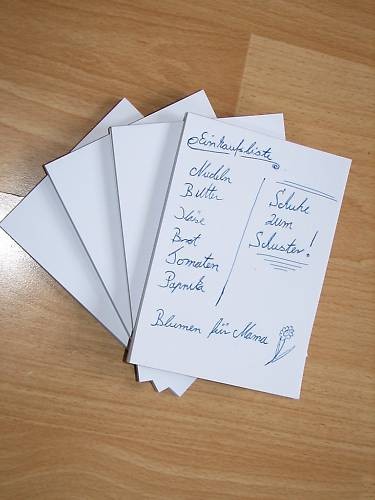 Einkaufsliste
Nudeln
Butter
Käse
Brot
Tomaten
Paprika
Schuhe
zum
Schuster!
Blumen für Mama